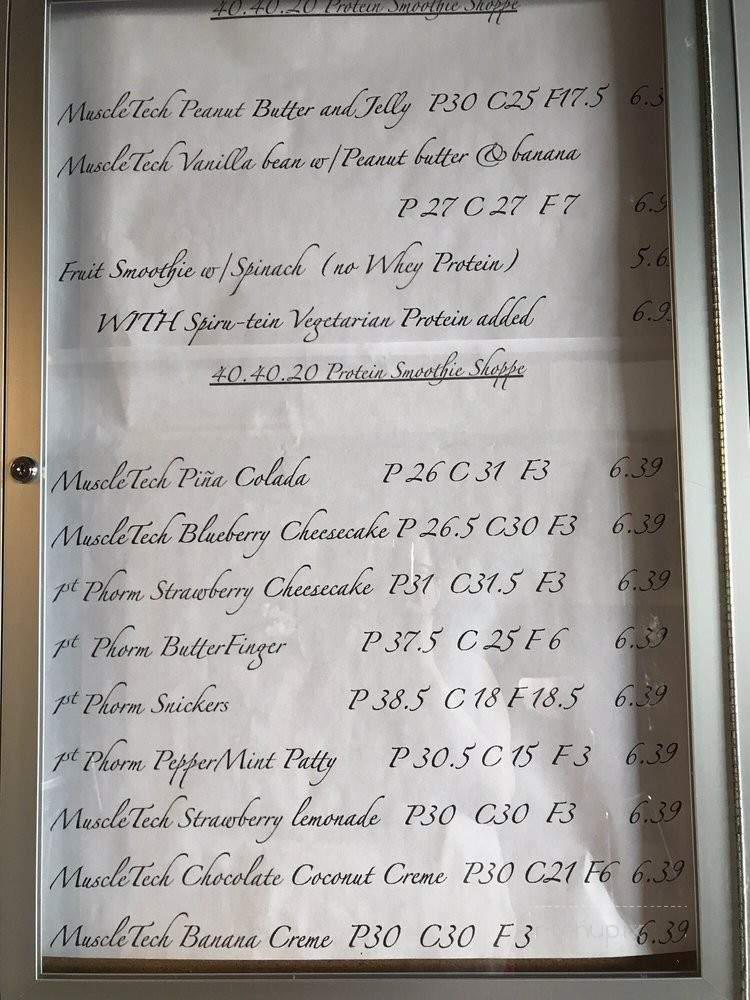 40.40.20 Protein Smoothie Shoppe
MuscleTech Peanut Butter and Jelly P30 C25 F17.5 6.3
MuscleTech Vanilla bean w/Peanut butter @ banana
P 27 C 27 F 7 6.9
Fruit Smoothie w/Spinach (no Whey Protein) 5.6
WITH Spiru-tein Vegetarian Protein added 6.9
40.40.20 Protein Smoothie Shoppe
MuscleTech Piña Colada P 26 C 31 F3 6.39
MuscleTech Blueberry Cheesecake P 26.5 C30 F3 6.39
1st Phorm Strawberry Cheesecake P31 C31.5 F3 6.39
1st Phorm ButterFinger P 37.5 C 25 F 6 6.39
1st Phorm Snickers P 38.5 C 18 F 18.5 6.39
1st Phorm PepperMint Patty P 30.5 C 15 F 3 6.39
MuscleTech Strawberry lemonade P30 C30 F3 6.39
MuscleTech Chocolate Coconut Creme P30 C21 F6 6.39
MuscleTech Banana Creme P30 C30 F 3 6.39